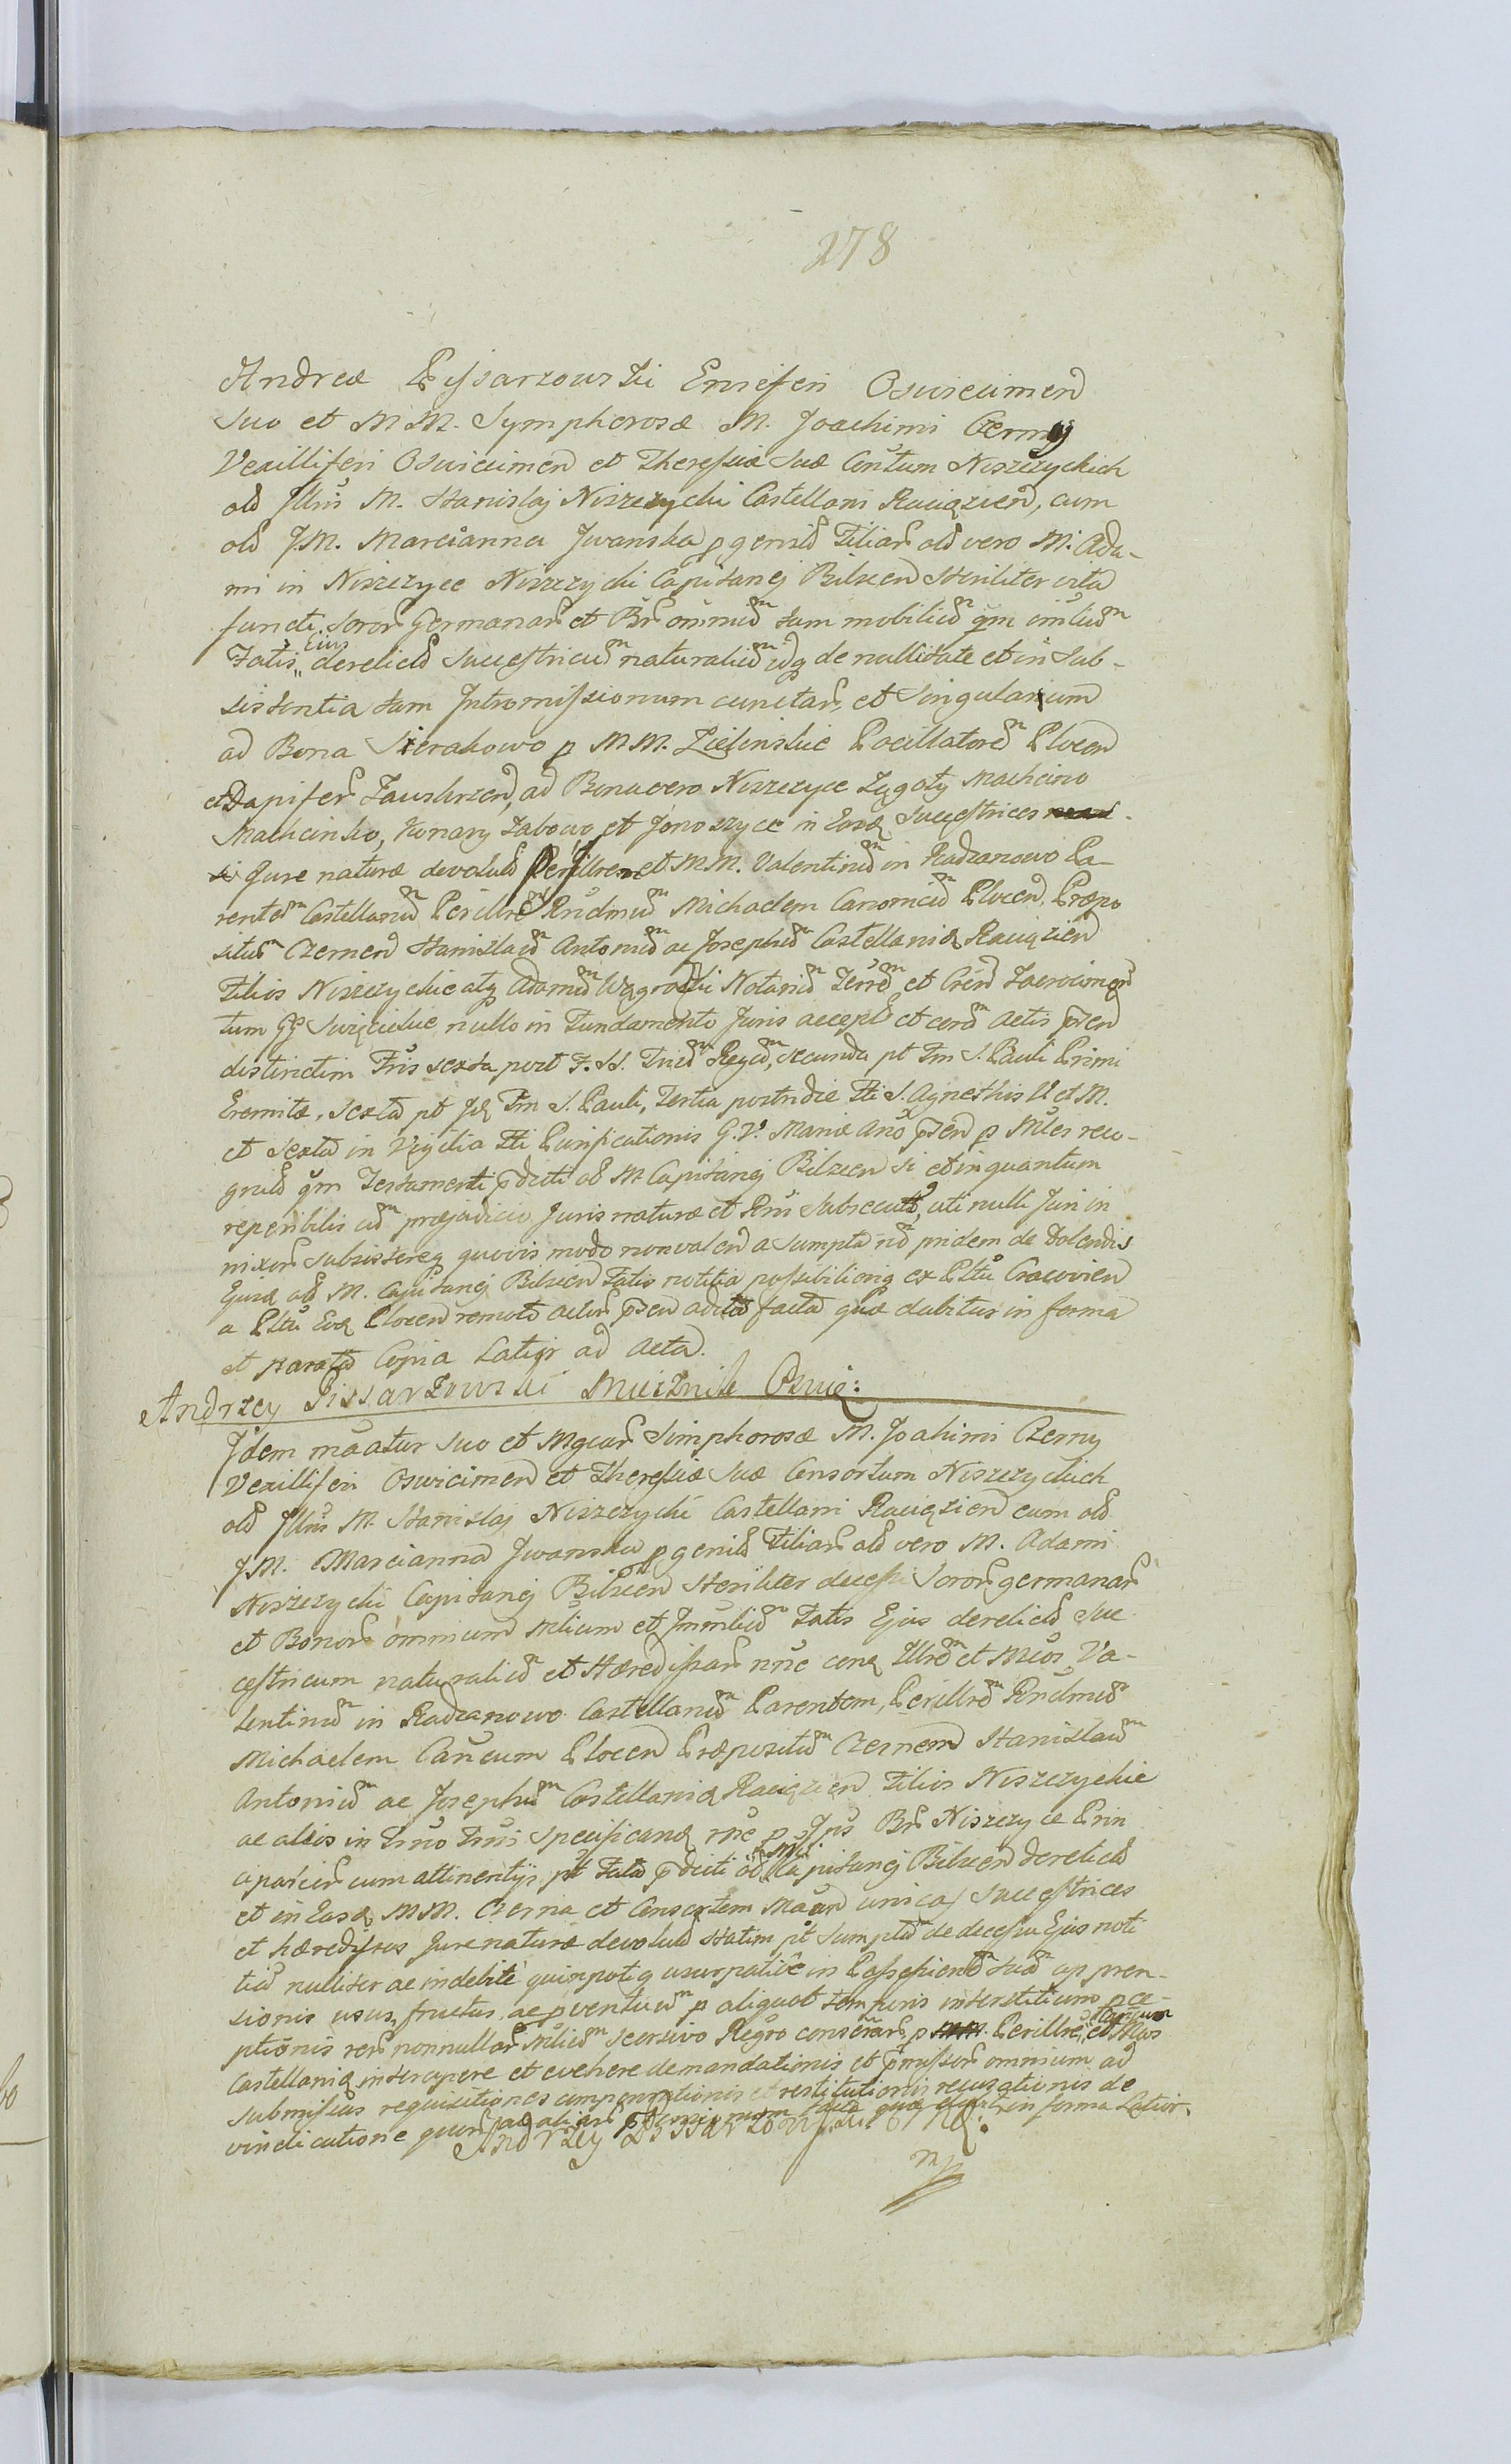 278
Andreæ Pissarzowski Ensiferi Osviecimen
suo et MM. Sympherosæ M. Joachimi Czerny
Vexilliferi Osviecimen et Theressiæ suæ Coñtum Niszczyckich
olð Jllus M. Stanislaj Niszczycki Castellani Raciązien, cum
olð J.M. Marcianna Jwanska pgenit Filiar olð vero M. Ada-
mi in Niszczyce Niszczycki Capitanej Bilscen Steriliter vita
functi, Soror Germanar et Br omniu tam mobiliu qm imbliu
Fatis Eius derelict Successtricum naturaliu idq de nullitate et in sub-
sistentia tam Intromissionum cunctar, et Singularium
ad Bona Sierakowo p MM. Zielinskie Pocillatore Plocen
et Dapifer Zawskrzen, ad Bona vero Niszczyce Zągoty Machcino
Machcinko, Konary Zabowo et Jonoszyce in Easq Successtrices
Jure naturæ devolut Perillrem et MM. Valentinu in Radzanowo Pa-
rentem Castellanu Perillre Rndmu Michaelem Canonicu Plocen, Præpo
situ Czernen Stanislau Antoniu ac Josephu Castellaniq Raciązien
Filios Niszczyckie atq Adamu Wągrodzki Notariu Terre et Cren Zacrocimen
tum GG Swięcickie nullo in Fundamento Juris accept et cora Actis psen
distinctim Fris sexta post F. SS. Triu Regu, secunda pt Fm S. Pauli Primi
Eremitæ, Sexta pt Jd Fm S. Pauli, Tertia postridie Fti S. Agnethis V et M.
et Sexta in Vigilia Fti Purificationis G.V. Mariæ Ano psen p Mtes reco-
gnit qm Testamenti pdicti ol M. Capitanej Bilscen si et in quantum
reperibilis cu præjudicio Juris naturæ et Pñi subsecut, uti nulli Juri in
nixor subsistereq quovis modo non valen a Sumpta nð pridem de dolendis
Ejusq olð M. Capitanej Bilscen Fatis notitia possibilioriq ex Pltu Cracovien
a Pltu Eoq Plocen remoto Actor psen aditu facta quæ dabitur in forma
et parata Copia Latijr ad Acta.
Andrzey Pissarzowski Miecznik Oswię:
Jdem mãatur suo et Mgcar Simphorosæ M. Joahimi Czerny
Vexilliferi Oswicimen et Theressiæ suæ Consortum Niszczyckich
olð Jllus M. Stanislaj Niszczycki Castellani Raciązien cum olð
J.M. Marcianna Jwanska pgenit Filiar olð vero M. Adami
Niszczycki Capitanej Bilscen Steriliter decessi Soror germanar
et Bonor omnium Mlium et Jmmbliu Fatis Ejus derelict Suc
cesstricum naturaliu et Hæredissar nne cora Illre et Mcos Va-
lentinu in Radzanowo Castellanu Parentem, Perillre Rndmu
Michaelem Cañcum Plocen Præpositu Czernen Stanislau
Antoniu ac Josephu Castellaniq Raciązien Filios Niszczyckie
ac alios in Fruo Fmi Specificanq rne p Jps Br Niszczyce Prin
cipalium cum attinentijs pt Fata pdicti olð M. Capitanej Bilscen derelict
et in Easq MM. Czerna et Consortem Mãan unicas Successtrices
et hæredissas Jure naturæ devolut statim pt sumpta de decessu Ejus noti
tia nulliter ac indebite quinpotiq usurpative in Possessione suã appren-
sionis usus, fructus, ac pventuu p aliquot temporis interstitium pce-
ptionis rer nonnullar Mliu Scersivo Regro conscriar p Perillre, et Mcos
Castellaniq intercipere et evehere demandationis et pmissor omnium ad
Submissas requisitiones compensationis et restitutionis recusationis de
vindicatione quor ac alior pdemissionum facta quæ dabit in forma Latior.
Andrzey Pissarzowski M O
mp